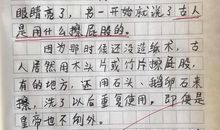 眼睛亮了，书一开始就说了古人
是用什么擦屁股的。
因为那时侯还没造纸术，古
人居然用木头片或竹片擦屁股，
有的地方，还用石头、鹅卵石来
擦，洗了以后重复使用。即使是
皇帝也不例外。